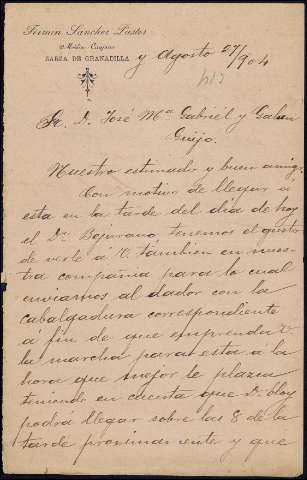 Fermín Sánchez Pastor
Molin-Caspar
ZARZA DE GRANADILLA
y Agosto 27/904
Sr. D. José Mª Gabriel y Galan
Guijo.
Nuestro estimado y buen amigo:
Con motivo de llegar a
esta en la tarde del dia de hoy
el Dr. Bejarano tenemos el gusto
de verle á V. tambien en nues-
tra compañia para lo cual
enviamos al dador con la
cabalgadura correspondiente
á fin de que emprenda V.
la marcha para esta á la
hora que mejor le plazca
teniendo en cuenta que D. Eloy
podrá llegar sobre las 8 de la
tarde proximamente y que